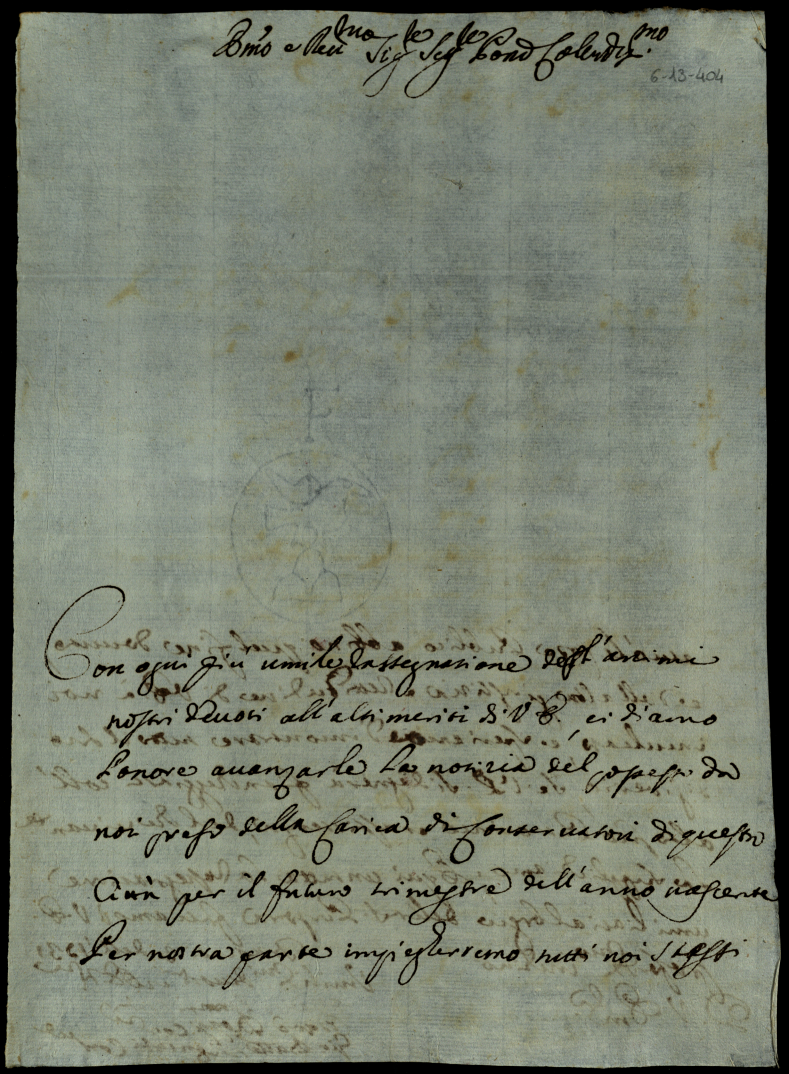 Em̃o e Reu.mo Sig.re Sig.re Pron Colendis.mo
6-13-404
Con ogni più umile rassegnatione degl'animi
nostri deuoti all'alti meriti di V E., ci diamo
l'onore auanzarle la notizia del possesso da
noi preso della Carica di Conseruatori di questa
Città per il futuro trimestre dell'anno nascente
Per nostra parte impiegherremo tutti noi stessi